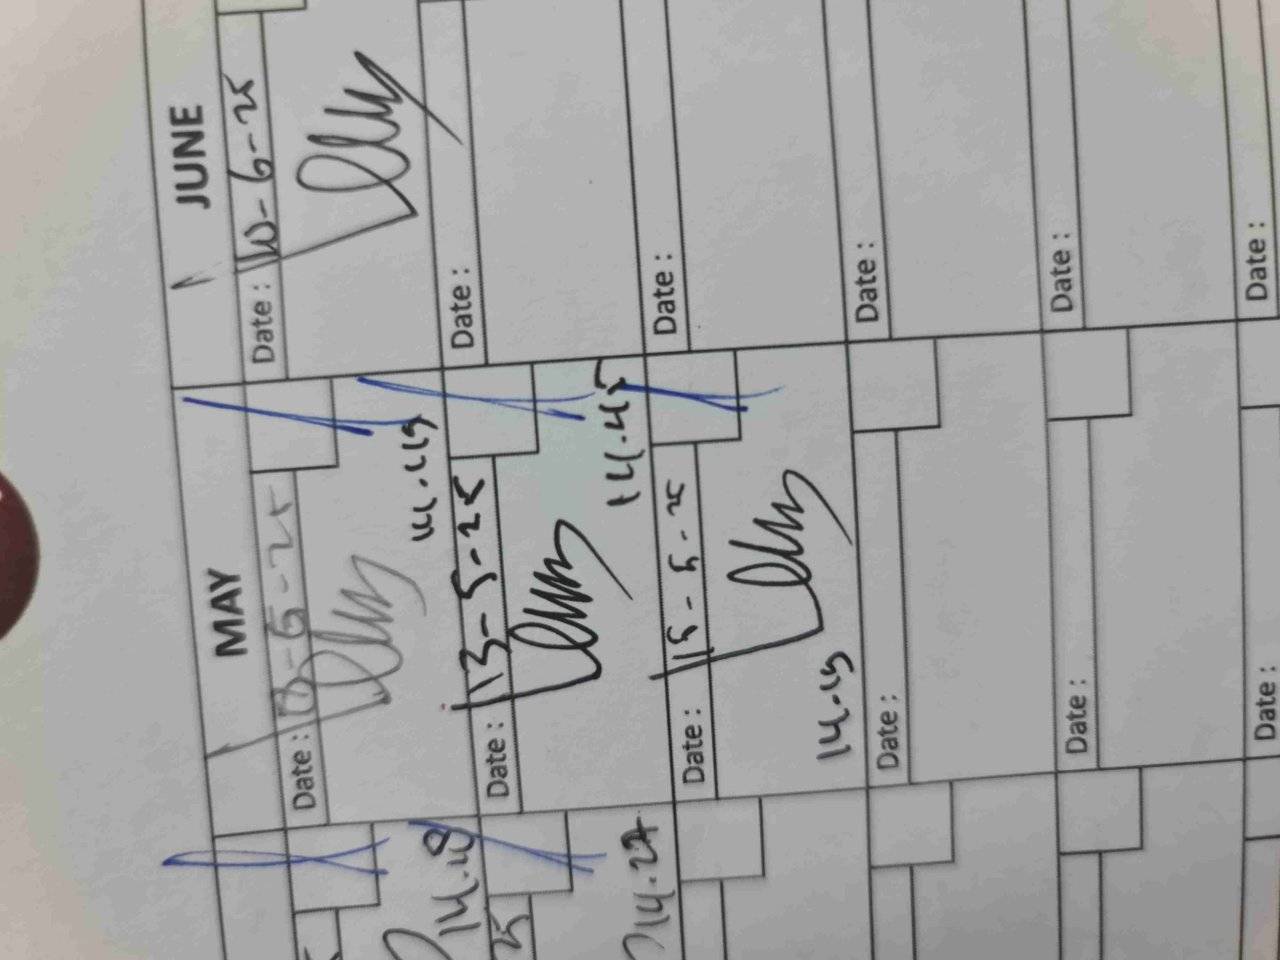 MAY JUNE
Date :
14.49
Date : 10-6-25
14.18
Date : 13-5-25
14.45
Date :
25
14.27
Date : 15-5-25
14.49
Date :
Date :
Date :
Date :
Date :
Date :
Date :